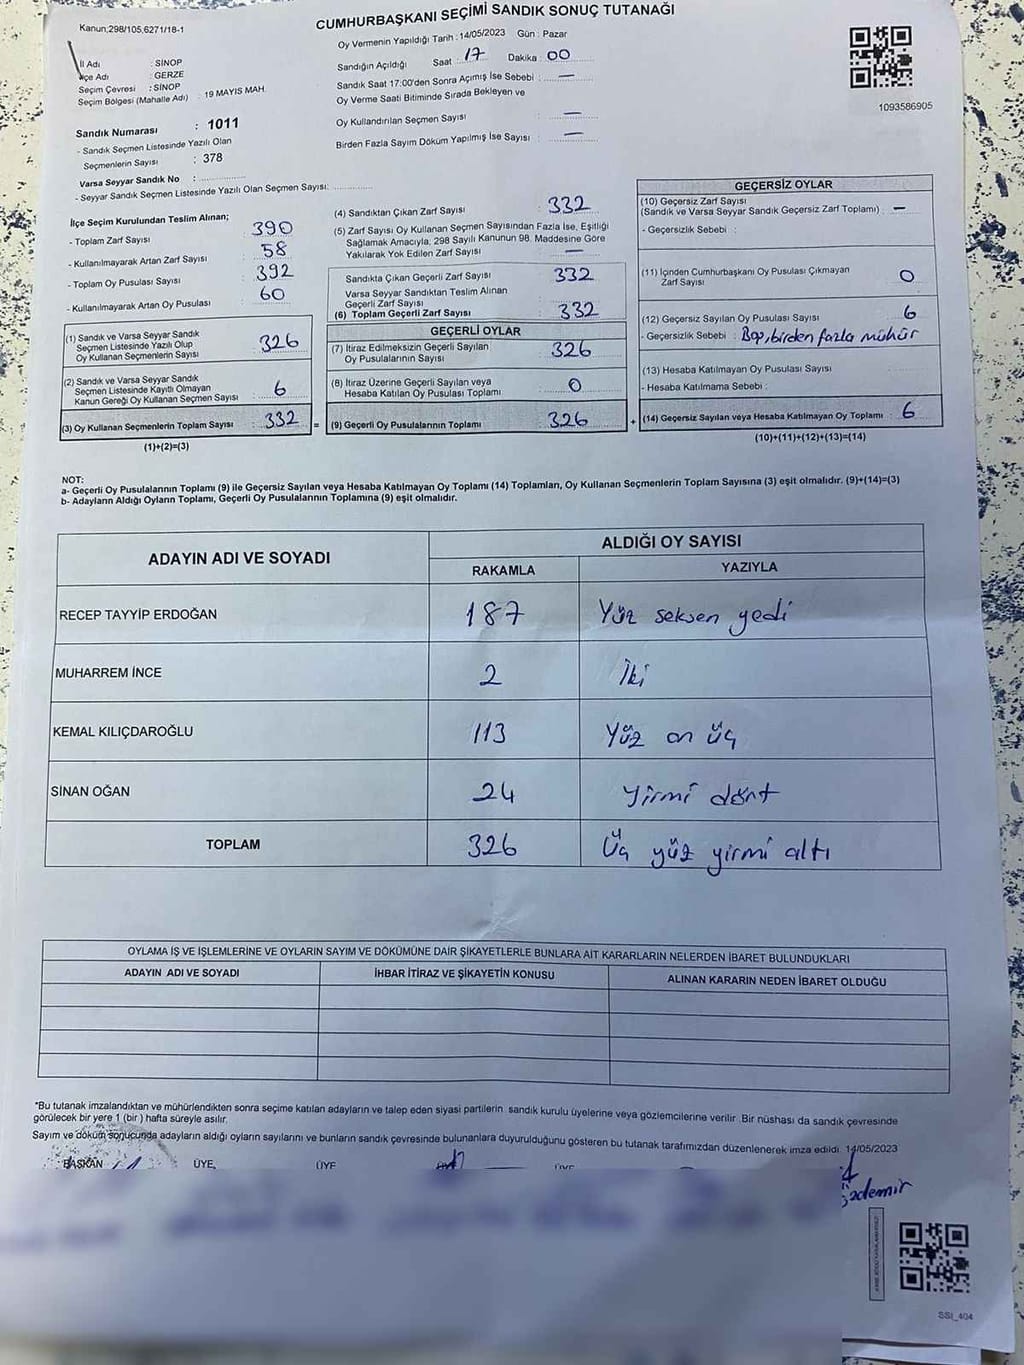 Kanun;298/105,6271/18-1
CUMHURBAŞKANI SEÇİMİ SANDIK SONUÇ TUTANAĞI
Oy Vermenin Yapıldığı Tarih : 14/05/2023 Gün : Pazar
Sandığın Açıldığı Saat : 17 Dakika : 00
Sandık Saat 17:00'den Sonra Açımış İse Sebebi : —
Oy Verme Saati Bitiminde Sırada Bekleyen ve
Oy Kullandırılan Seçmen Sayısı : —
Birden Fazla Sayım Döküm Yapılmış İse Sayısı : —
1093586905
İl Adı : SİNOP
İlçe Adı : GERZE
Seçim Çevresi : SİNOP
Seçim Bölgesi (Mahalle Adı) : 19 MAYIS MAH.
Sandık Numarası : 1011
- Sandık Seçmen Listesinde Yazılı Olan
Seçmenlerin Sayısı : 378
Varsa Seyyar Sandık No :
- Seyyar Sandık Seçmen Listesinde Yazılı Olan Seçmen Sayısı:
İlçe Seçim Kurulundan Teslim Alınan;
- Toplam Zarf Sayısı 390
- Kullanılmayarak Artan Zarf Sayısı 58
- Toplam Oy Pusulası Sayısı 392
- Kullanılmayarak Artan Oy Pusulası 60
(1) Sandık ve Varsa Seyyar Sandık
Seçmen Listesinde Yazılı Olup
Oy Kullanan Seçmenlerin Sayısı : 326
(2) Sandık ve Varsa Seyyar Sandık
Seçmen Listesinde Kayıtlı Olmayan
Kanun Gereği Oy Kullanan Seçmen Sayısı : 6
(3) Oy Kullanan Seçmenlerin Toplam Sayısı : 332 =
(1)+(2)=(3)
(4) Sandıktan Çıkan Zarf Sayısı : 332
(5) Zarf Sayısı Oy Kullanan Seçmen Sayısından Fazla İse, Eşitliği
Sağlamak Amacıyla; 298 Sayılı Kanunun 98. Maddesine Göre
Yakılarak Yok Edilen Zarf Sayısı : —
Sandıkta Çıkan Geçerli Zarf Sayısı : 332
Varsa Seyyar Sandıktan Teslim Alınan
Geçerli Zarf Sayısı
(6) Toplam Geçerli Zarf Sayısı : 332
GEÇERLİ OYLAR
(7) İtiraz Edilmeksizin Geçerli Sayılan
Oy Pusulalarının Sayısı : 326
(8) İtiraz Üzerine Geçerli Sayılan veya
Hesaba Katılan Oy Pusulası Toplamı : 0
(9) Geçerli Oy Pusulalarının Toplamı : 326 +
GEÇERSİZ OYLAR
(10) Geçersiz Zarf Sayısı
(Sandık ve Varsa Seyyar Sandık Geçersiz Zarf Toplamı) : —
- Geçersizlik Sebebi :
(11) İçinden Cumhurbaşkanı Oy Pusulası Çıkmayan
Zarf Sayısı : 0
(12) Geçersiz Sayılan Oy Pusulası Sayısı : 6
- Geçersizlik Sebebi : Boş, birden fazla mühür
(13) Hesaba Katılmayan Oy Pusulası Sayısı :
- Hesaba Katılmama Sebebi :
(14) Geçersiz Sayılan veya Hesaba Katılmayan Oy Toplamı : 6
(10)+(11)+(12)+(13)=(14)
NOT:
a- Geçerli Oy Pusulalarının Toplamı (9) ile Geçersiz Sayılan veya Hesaba Katılmayan Oy Toplamı (14) Toplamları, Oy Kullanan Seçmenlerin Toplam Sayısına (3) eşit olmalıdır. (9)+(14)=(3)
b- Adayların Aldığı Oyların Toplamı, Geçerli Oy Pusulalarının Toplamına (9) eşit olmalıdır.
ADAYIN ADI VE SOYADI ALDIĞI OY SAYISI
RAKAMLA YAZIYLA
RECEP TAYYİP ERDOĞAN 187 Yüz seksen yedi
MUHARREM İNCE 2 İki
KEMAL KILIÇDAROĞLU 113 Yüz on üç
SİNAN OĞAN 24 Yirmi dört
TOPLAM 326 Üç yüz yirmi altı
OYLAMA İŞ VE İŞLEMLERİNE VE OYLARIN SAYIM VE DÖKÜMÜNE DAİR ŞİKAYETLERLE BUNLARA AİT KARARLARIN NELERDEN İBARET BULUNDUKLARI
ADAYIN ADI VE SOYADI İHBAR İTİRAZ VE ŞİKAYETİN KONUSU ALINAN KARARIN NEDEN İBARET OLDUĞU
*Bu tutanak imzalandıktan ve mühürlendikten sonra seçime katılan adayların ve talep eden siyasi partilerin sandık kurulu üyelerine veya gözlemcilerine verilir. Bir nüshası da sandık çevresinde
görülecek bir yere 1 (bir) hafta süreyle asılır.
Sayım ve döküm sonucunda adayların aldığı oyların sayılarını ve bunların sandık çevresinde bulunanlara duyurulduğunu gösteren bu tutanak tarafımızdan düzenlenerek imza edildi. 14/05/2023
BAŞKAN ÜYE ÜYE ÜYE
SSI_404